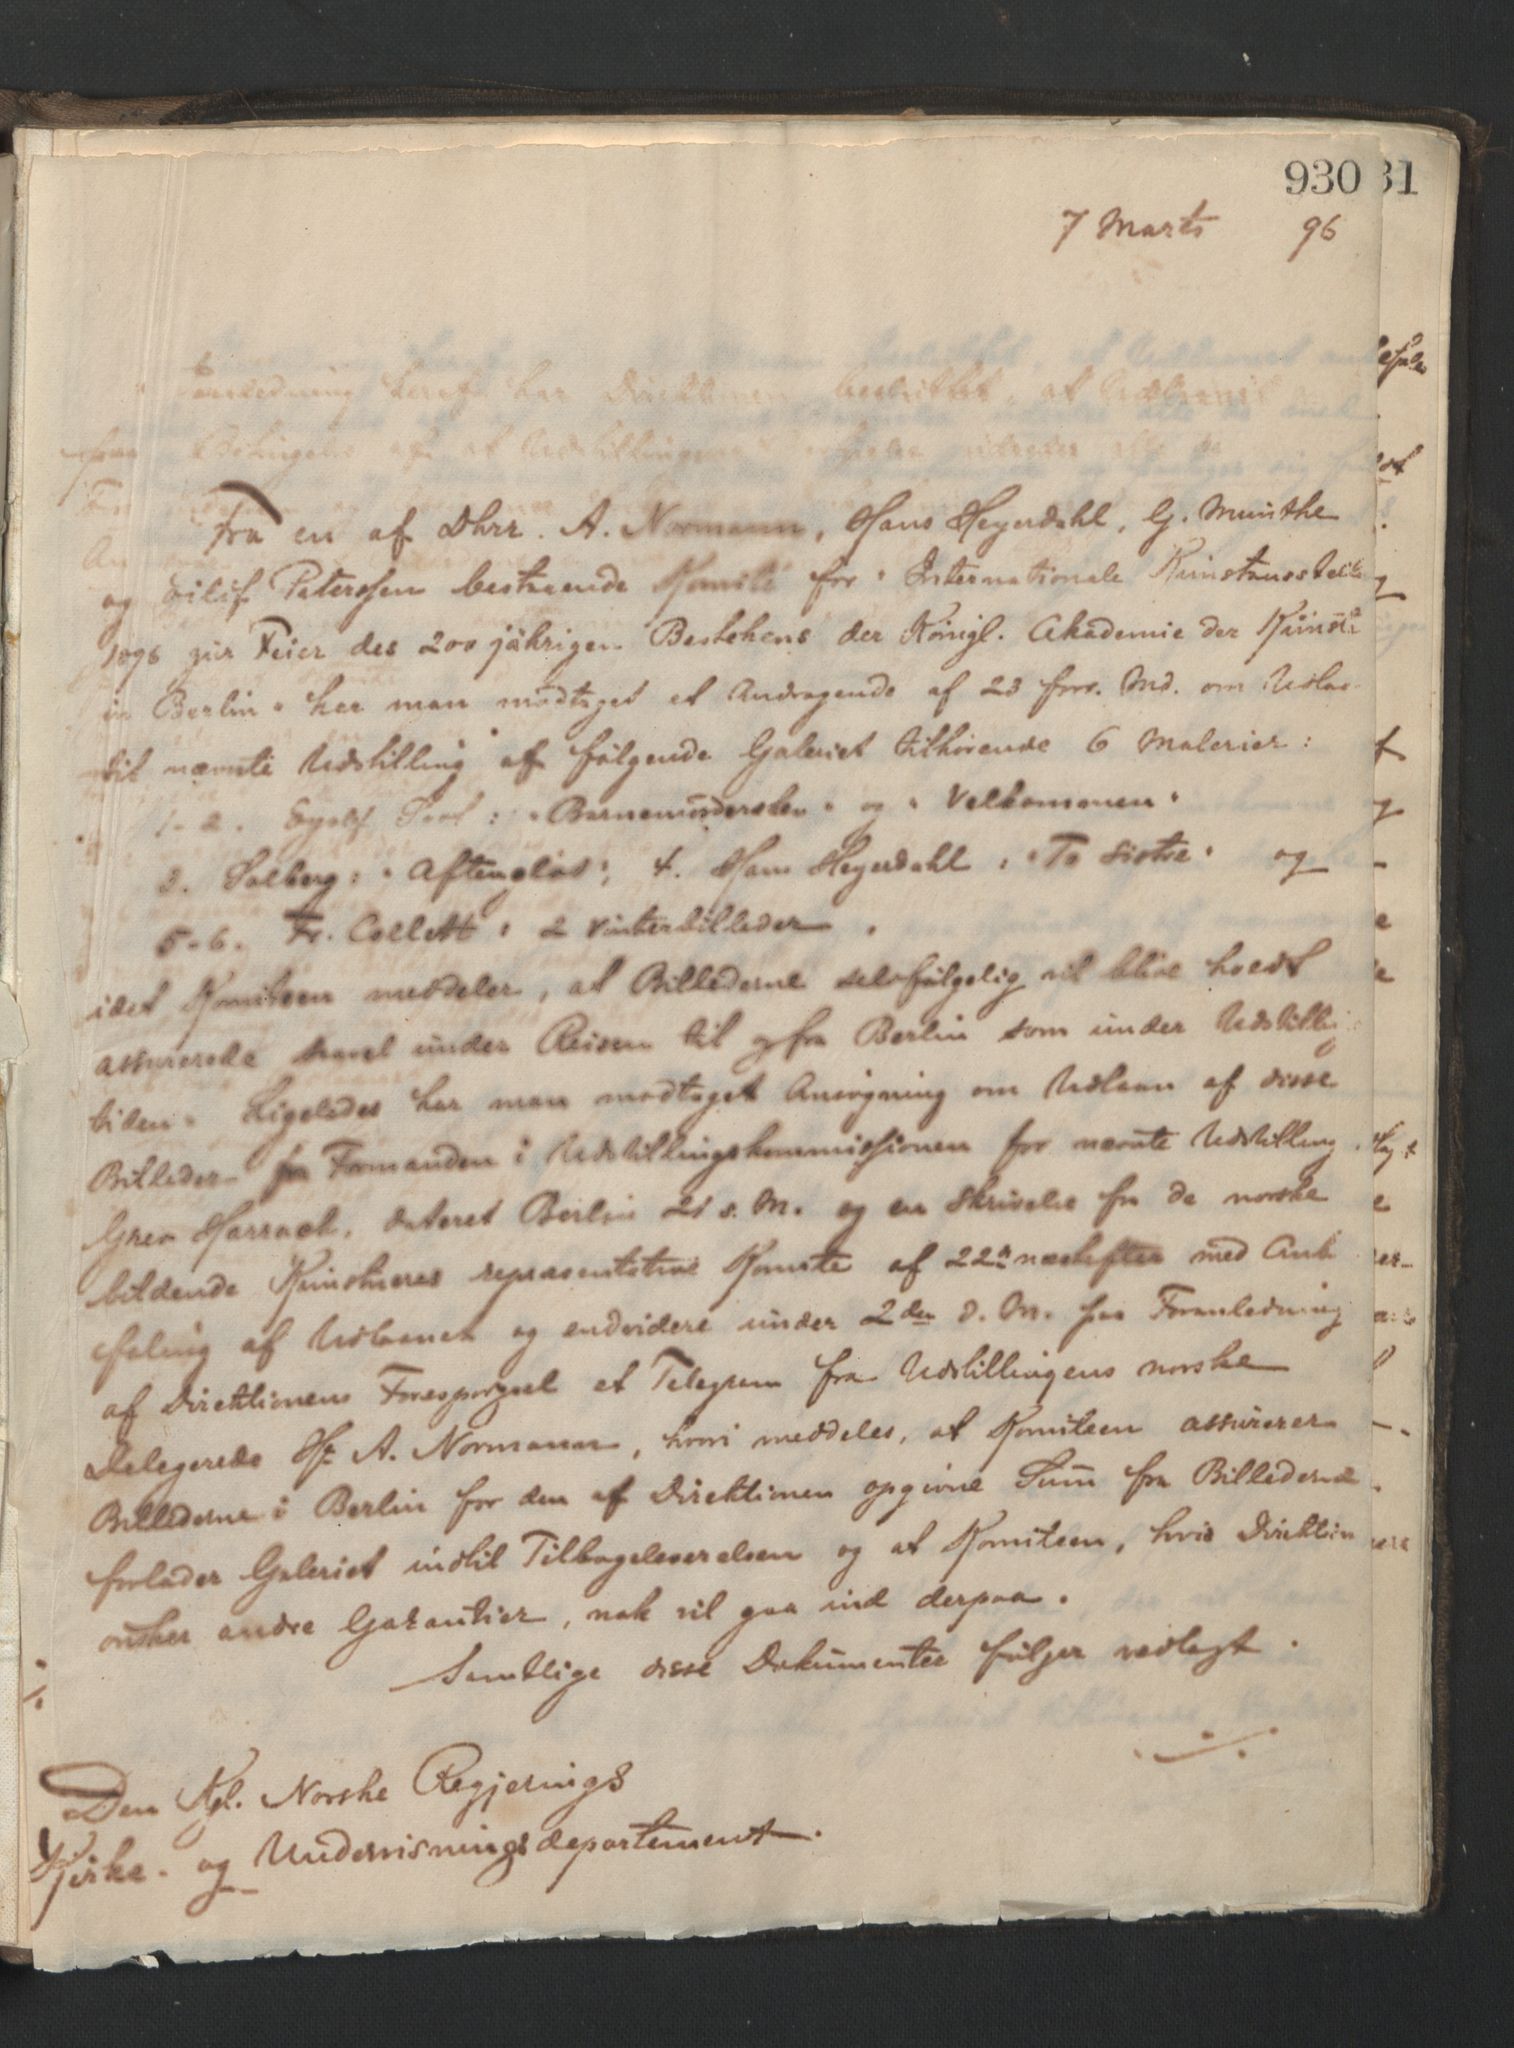 930 31
7 Marts 96
Fra en af Dhrr. A. Normann, Hans Heyerdahl, G. Munthe
og Eilif Peterssen bestaaende Komite for "Internationale Kunstausstell
1896 zur Feier des 200 jährigen Bestehens der Königl. Akademie der Künste
in Berlin" har man modtaget et Andragende af 23 forr. Md. om Udlaa
til nævnte Udstilling af følgende Galeriet tilhørende 6 Malerier:
1-2. Eyolf Soot: "Barnemordersken" og "Velkommen"
3. Solberg: "Aftenglød", 4. Hans Heyerdahl: "To Søstre" og
5-6. Fr. Collett: 2 Vinterbilleder.
idet Komiteen meddeler, at Billederne selvfølgelig vil blive høiest
assurerede saavel under Reisen til og fra Berlin som under Udstilli
tiden. Ligeledes har man modtaget Ansøgning om Udlaan af disse
Billeder fra Formanden i Udstillingskommissionen for nævnte Udstilling
Grev Harrach, dateret Berlin 21 s. M. og en Skrivelse fra de norske
bildende Kunstneres repræsentative Komite af 22n næstefter med Anb
faling af Udlaanet og endvidere under 2den d. M. paa Foranledning
af Direktionens Forespørgsel et Telegram fra Udstillingens norske
Delegerede Hr A. Normann, hvori meddeles, at Komiteen assurerer
Billederne i Berlin for den af Direktionen opgivne Sum fra Billederne
forlader Galeriet indtil Tilbageleverelsen og at Komiteen, hvis Direktion
ønsker andre Garantier, nok vil gaa ind derpaa.
Samtlige disse Dokumenter følger vedlagt.
Den Kgl. Norske Regjerings
Kirke- og Undervisningsdepartement.